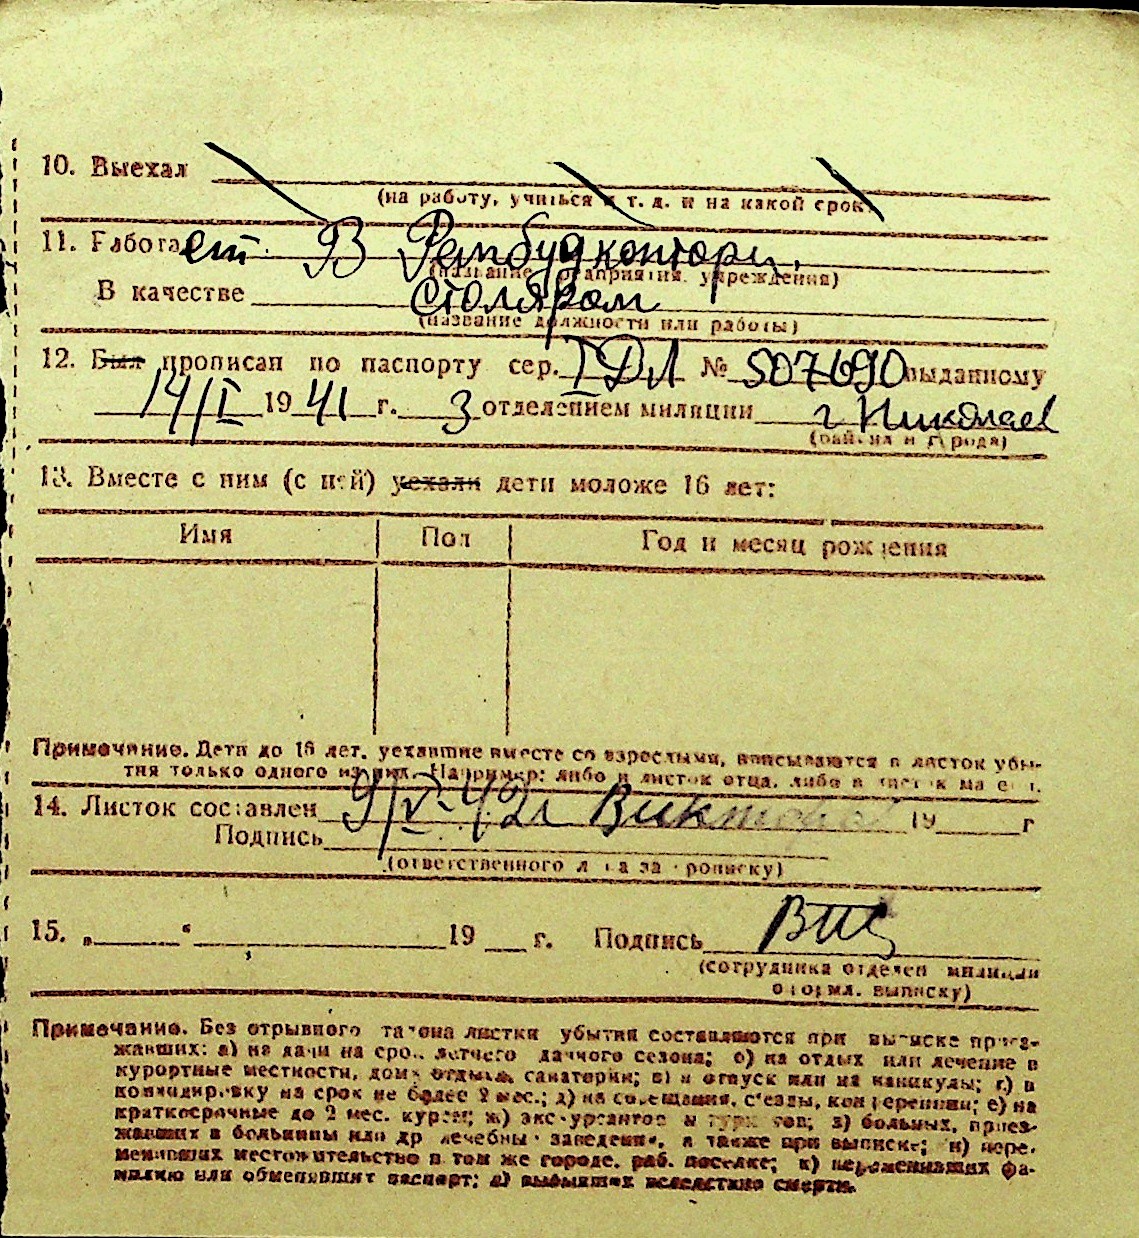 10. Выехал
(на работу, учиться и т. д. и на какой срок)
11. Работает В Рембудконторі
(название предприятия, учреждения)
В качестве столяром
(название должности или работы)
12. Был прописан по паспорту сер. I ДЛ № 507690 выданному
14/I 1941 г. 3 отделением милиции г Николаев
(района и города)
13. Вместе с ним (с ней) уехали дети моложе 16 лет:
Имя Пол Год и месяц рождения
Примечание. Дети до 16 лет, уехавшие вместе со взрослыми, вписываются в листок убы-
тия только одного из них. Например: либо в листок отца, либо в листок матери.
14. Листок составлен 9/V-42г 19 г
Подпись
(ответственного лица за прописку)
15. „ “ 19 г. Подпись
(сотрудника отделен милиции
оформл. выписку)
Примечание. Без отрывного талона листки убытия составляются при выписке приез-
жавших: а) на дачи на срок летнего дачного сезона; б) на отдых или лечение в
курортные местности, дома отдыха, санатории; в) в отпуск или на каникулы; г) в
командировку на срок не более 2 мес.; д) на совещания, съезды, конференции; е) на
краткосрочные до 2 мес. курсы; ж) экскурсантов и туристов; з) больных, приез-
жавших в больницы или др лечебны заведения, а также при выписке; и) пере-
менивших местожительство в том же городе, раб. поселке; к) переменивших фа-
милию или обменявших паспорт; л) выбывших вследствие смерти.